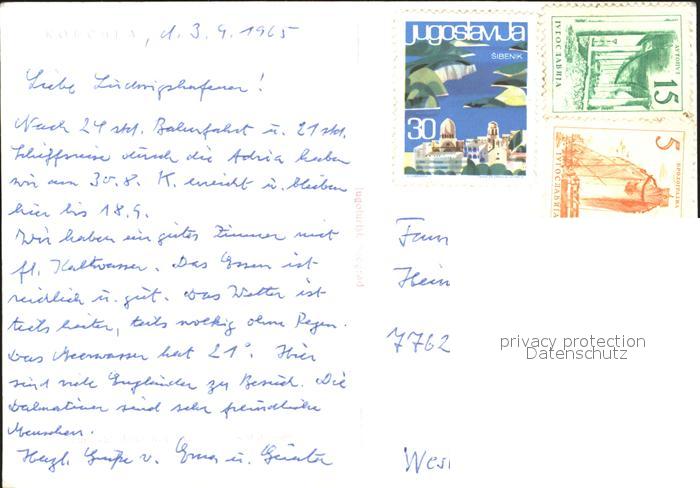 KORČULA, d. 3.9.1965
Liebe Ludwigshafener!
Nach 24 std. Bahnfahrt u. 21 std.
Schiffsreise durch die Adria haben
wir am 30.8. K. erreicht u. bleiben
hier bis 18.9.
Wir haben ein gutes Zimmer mit
fl. Kaltwasser. Das Essen ist
reichlich u. gut. Das Wetter ist
teils heiter, teils wolkig ohne Regen.
Das Meerwasser hat 21°. Hier
sind viele Engländer zu Besuch. Die
Dalmatiner sind sehr freundliche
Menschen.
Herzl. Grüße v. Erna u. Günter
jugoslavija
ŠIBENIK
30
JUGOSLAVIJA
15
ЈУГОСЛАВИЈА
5
Fam
Hein
7762
privacy protection
Datenschutz
Wes